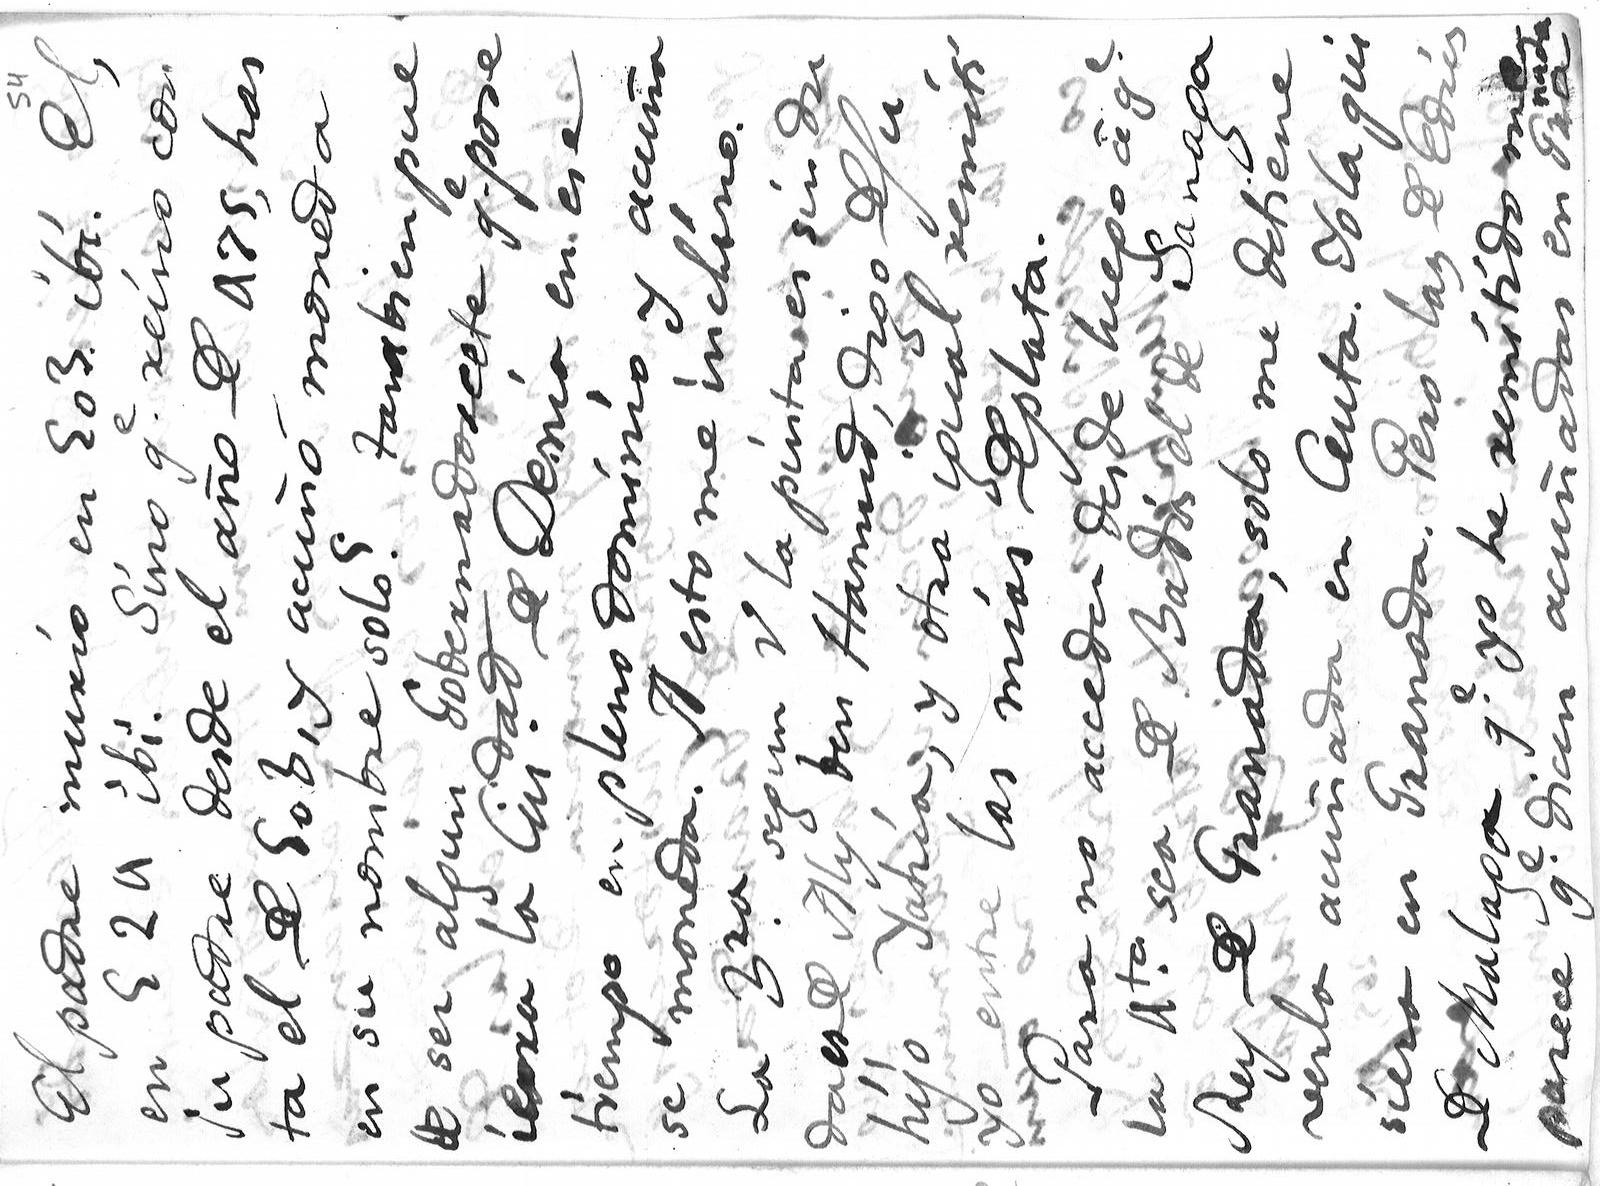 54
El padre murió en 503. ibi. El
en 524 ibi. Sino q.e reino con
su padre desde el año de 475, has
ta el de 503, y acuñó moneda
en su nombre solo. tambien pue
de ser algun Gobernador este q.e pose
la Ciudad de Denia en ese
tiempo en pleno dominio y acuña
se moneda. A esto me inclino.
La 3.ra segun la pinta es sin du
da es de Aly ben Hamud, digo de su
hijo Yahia, y otra igual remiti
yo entre las mias de plata.
Para no acceder desde luego á q.e
la 4.ta sea de Badis el de Sanaga
Rey de Granada, solo me detiene
verla acuñada en Ceuta. Yo la qui
siera en Granada. Pero las de Edris
de Malaga q.e yo he remitido me
parece q.e dicen acuñadas en Granada